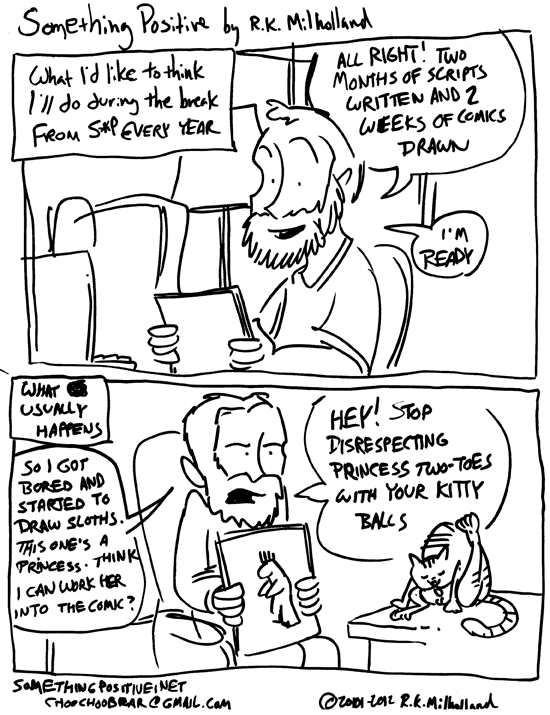 Something Positive by R.K. Milholland
What I'd like to think
I'll do during the break
FROM S*P EVERY YEAR
ALL RIGHT! TWO
MONTHS OF SCRIPTS
WRITTEN AND 2
WEEKS OF COMICS
DRAWN
I'M
READY
WHAT
USUALLY
HAPPENS
SO I GOT
BORED AND
STARTED TO
DRAW SLOTHS.
THIS ONE'S A
PRINCESS. THINK
I CAN WORK HER
INTO THE COMIC?
HEY! STOP
DISRESPECTING
PRINCESS TWO-TOES
WITH YOUR KITTY
BALLS
SOMETHINGPOSITIVE.NET
CHOOCHOOBEAR@GMAIL.COM
©2001-2012 R.K. Milholland